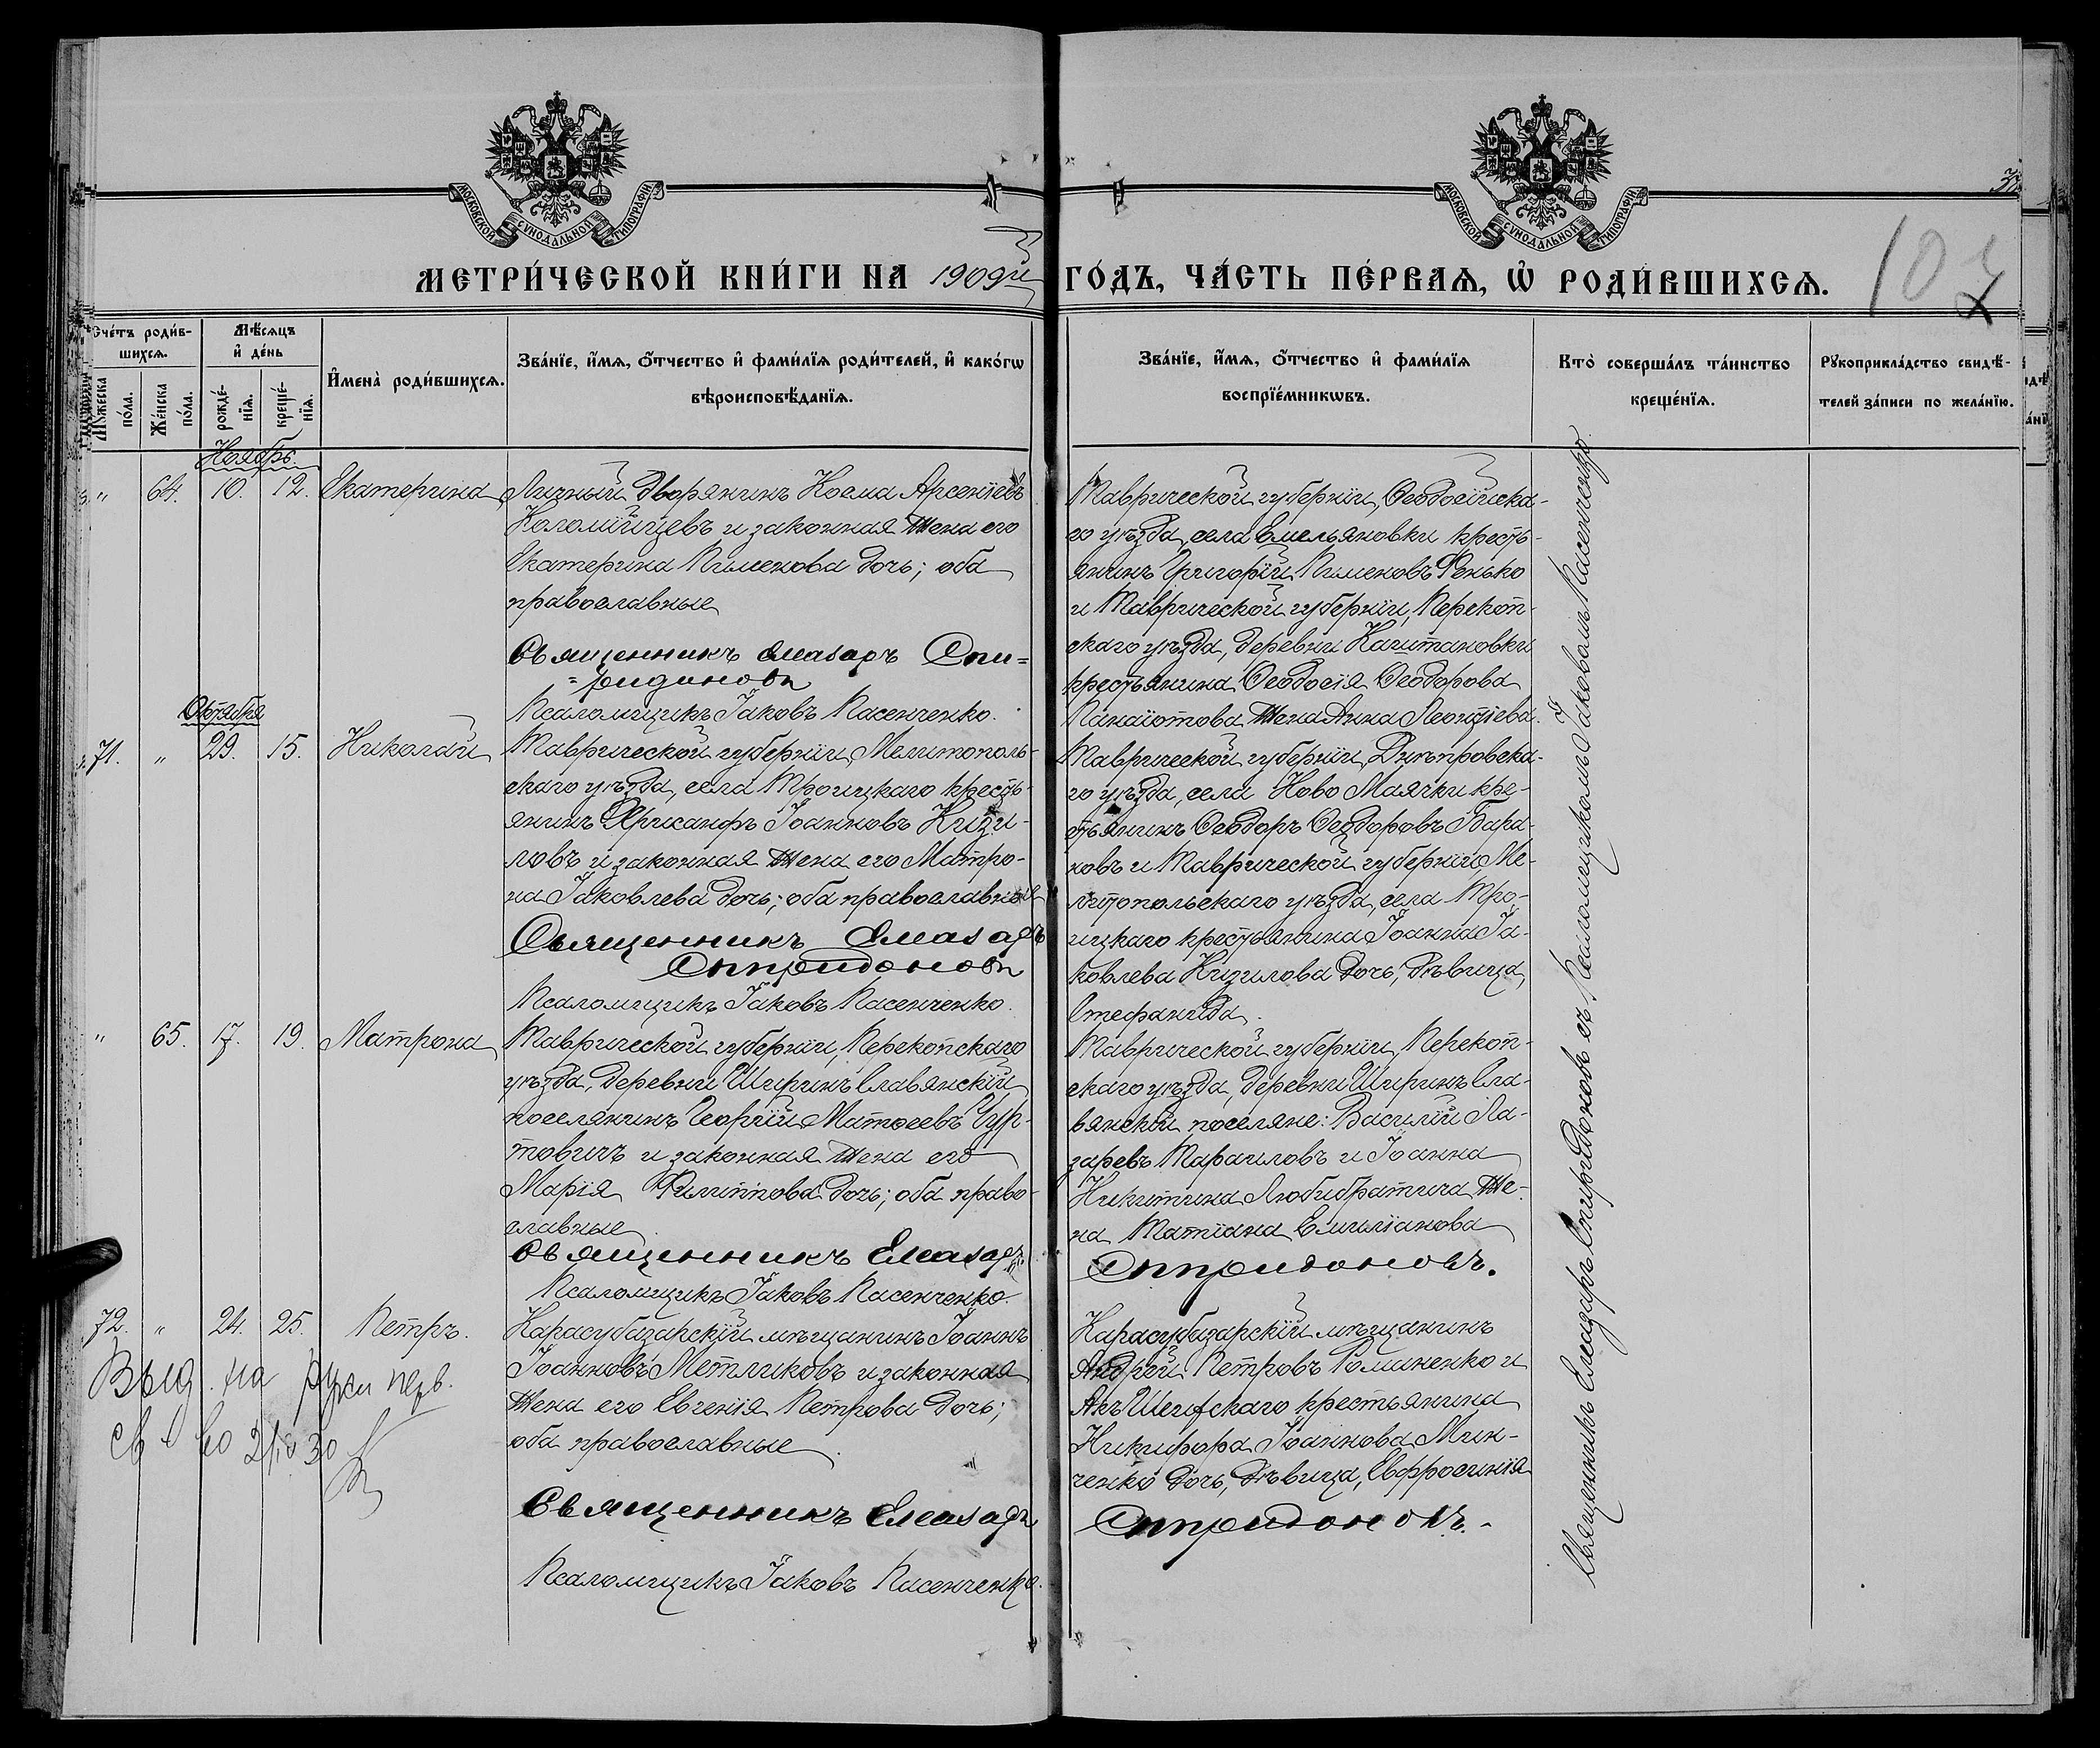 МОСКОВСКОЙ СѴНОДАЛЬНОЙ ТИПОГРАФІИ
МОСКОВСКОЙ СѴНОДАЛЬНОЙ ТИПОГРАФІИ
МЕТРИ́ЧЕСКОЙ КНИ́ГИ НА 1909й ГО́ДЪ, ЧА́СТЬ ПЕ́РВАѦ, Ѡ҆ РОДИ́ВШИХСѦ.
107
Сче́тъ роди́в-
шихсѧ.
Мѣ́сѧцъ
и҆ де́нь
Мꙋ́жеска
по́ла.
Же́нска
по́ла.
рожде́-
нїѧ.
креще́-
нїѧ.
И҆мена̀ роди́вшихсѧ.
Зва́нїе, и҆́мѧ, ѻ҆́тчество и҆ фами́лїѧ роди́телей, и҆ како́гѡ
вѣроисповѣ́данїѧ.
Зва́нїе, и҆́мѧ, ѻ҆́тчество и҆ фами́лїѧ
воспрїе́мникѡвъ.
Кто̀ соверша́лъ та́инство
креще́нїѧ.
Рꙋкоприкла́дство свидѣ́-
телей за́писи по жела́нїю.
Ноябрь.
" 64. 10. 12. Екатерина
Личный дворянинъ Косма Арсеніевъ
Коломійцевъ и законная жена его
Екатерина Пименова дочь; оба
православные
Священникъ Елеазаръ Спи=
=ридоновъ
Псаломщикъ Іаковъ Пасенченко.
Таврической губерніи, Ѳеодосійска-
го уѣзда, села Емельяновки кресть-
янинъ Григорій Пименовъ Фенько
и Таврической губерніи, Перекоп-
скаго уѣзда, деревни Каштановки
крестьянина Ѳеодосія Ѳеодорова
Панаіотова жена Анна Леонтіева.
Октября
71. " 29. 15. Николай
Таврической губерніи, Мелитополь-
скаго уѣзда, села Троицкаго кресть-
янинъ Хрисанфъ Іоанновъ Кизи-
ловъ и законная жена его Матро-
на Іаковлева дочь; оба православные
Священникъ Елеазаръ
Спиридоновъ
Псаломщикъ Іаковъ Пасенченко.
Таврической губерніи, Днѣпровска-
го уѣзда, села Ново Маячки кре-
стьянинъ Ѳеодоръ Ѳеодоровъ Бара-
новъ и Таврической губерніи, Ме-
литопольскаго уѣзда, села Тро-
ицкаго крестьянина Іоанна Іа-
ковлева Кизилова дочь, дѣвица,
Стефанида.
" 65. 17. 19. Матрона
Таврической губерніи, Перекопскаго
уѣзда, деревни Ширинъ Славянскій
поселянинъ Георгій Матѳеевъ Чур-
товичъ и законная жена его
Марія Филиппова дочь; оба право-
славные
Священникъ Елеазаръ
Псаломщикъ Іаковъ Пасенченко.
Таврической губерніи, Перекоп-
скаго уѣзда, деревни Ширинъ Сла-
вянскій поселяне: Василій Ла-
заревъ Параиловъ и Іоанна
Никитина Любибратича же-
на Татіана Емиліанова
Спиридоновъ.
72. " 24. 25. Петръ.
Карасубазарскій мѣщанинъ Іоаннъ
Іоанновъ Метликовъ и законная
жена его Евгенія Петрова дочь;
оба православные.
Священникъ Елеазаръ
Псаломщикъ Іаковъ Пасенченко.
Карасубазарскій мѣщанинъ
Андрей Петровъ Романенко и
Акъ Шейхскаго крестьянина
Никифора Іоаннова Мин-
ченко дочь, дѣвица, Евфросинія
Спиридоновъ.
Выд. на руки перв.
св-во 2/IV 30
Священникъ Елеазаръ Спиридоновъ съ Псаломщикомъ Іаковомъ Пасенченко.